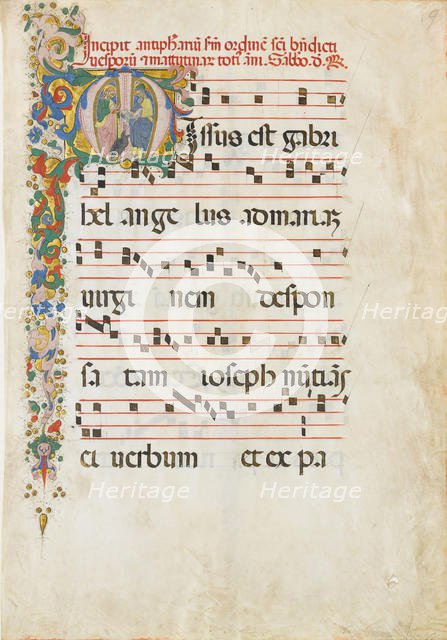 Incipit antiphanu sm ordine sci bndicti
vesporu & matutinar toti ani. Sabbo. d. R.
Missus est gabri
hel ange lus ad mariaz
virgi nem despon
sa tam ioseph nutias
ei verbum et ex pa
Heritage
Heritage
Heritage
Heritage
Heritage
Heritage
Heritage
Heritage